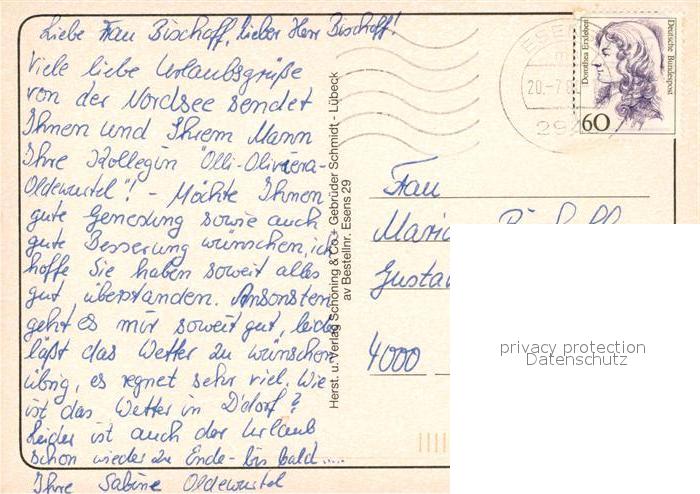 Liebe Frau Bischoff, lieber Herr Bischoff!
Viele liebe Urlaubsgrüße
von der Nordsee sendet
Ihnen und Ihrem Mann
Ihre Kollegin "Olli-Olivera-
Oldewurtel"! - Möchte Ihnen
gute Genesung sowie auch
gute Besserung wünschen, ich
hoffe Sie haben soweit alles
gut überstanden. Ansonsten
geht es mir soweit gut, leider
läßt das Wetter zu wünschen
übrig, es regnet sehr viel. Wie
ist das Wetter in D'dorf?
Leider ist auch der Urlaub
schon wieder zu Ende - bis bald.....
Ihre Sabine Oldewurtel
Herst. u. Verlag Schöning & Co. + Gebrüder Schmidt - Lübeck
av Bestellnr. Esens 29
ESE
20.-7.
Dorothea Erxleben
Deutsche Bundespost
60
Frau
4000
privacy protection
Datenschutz